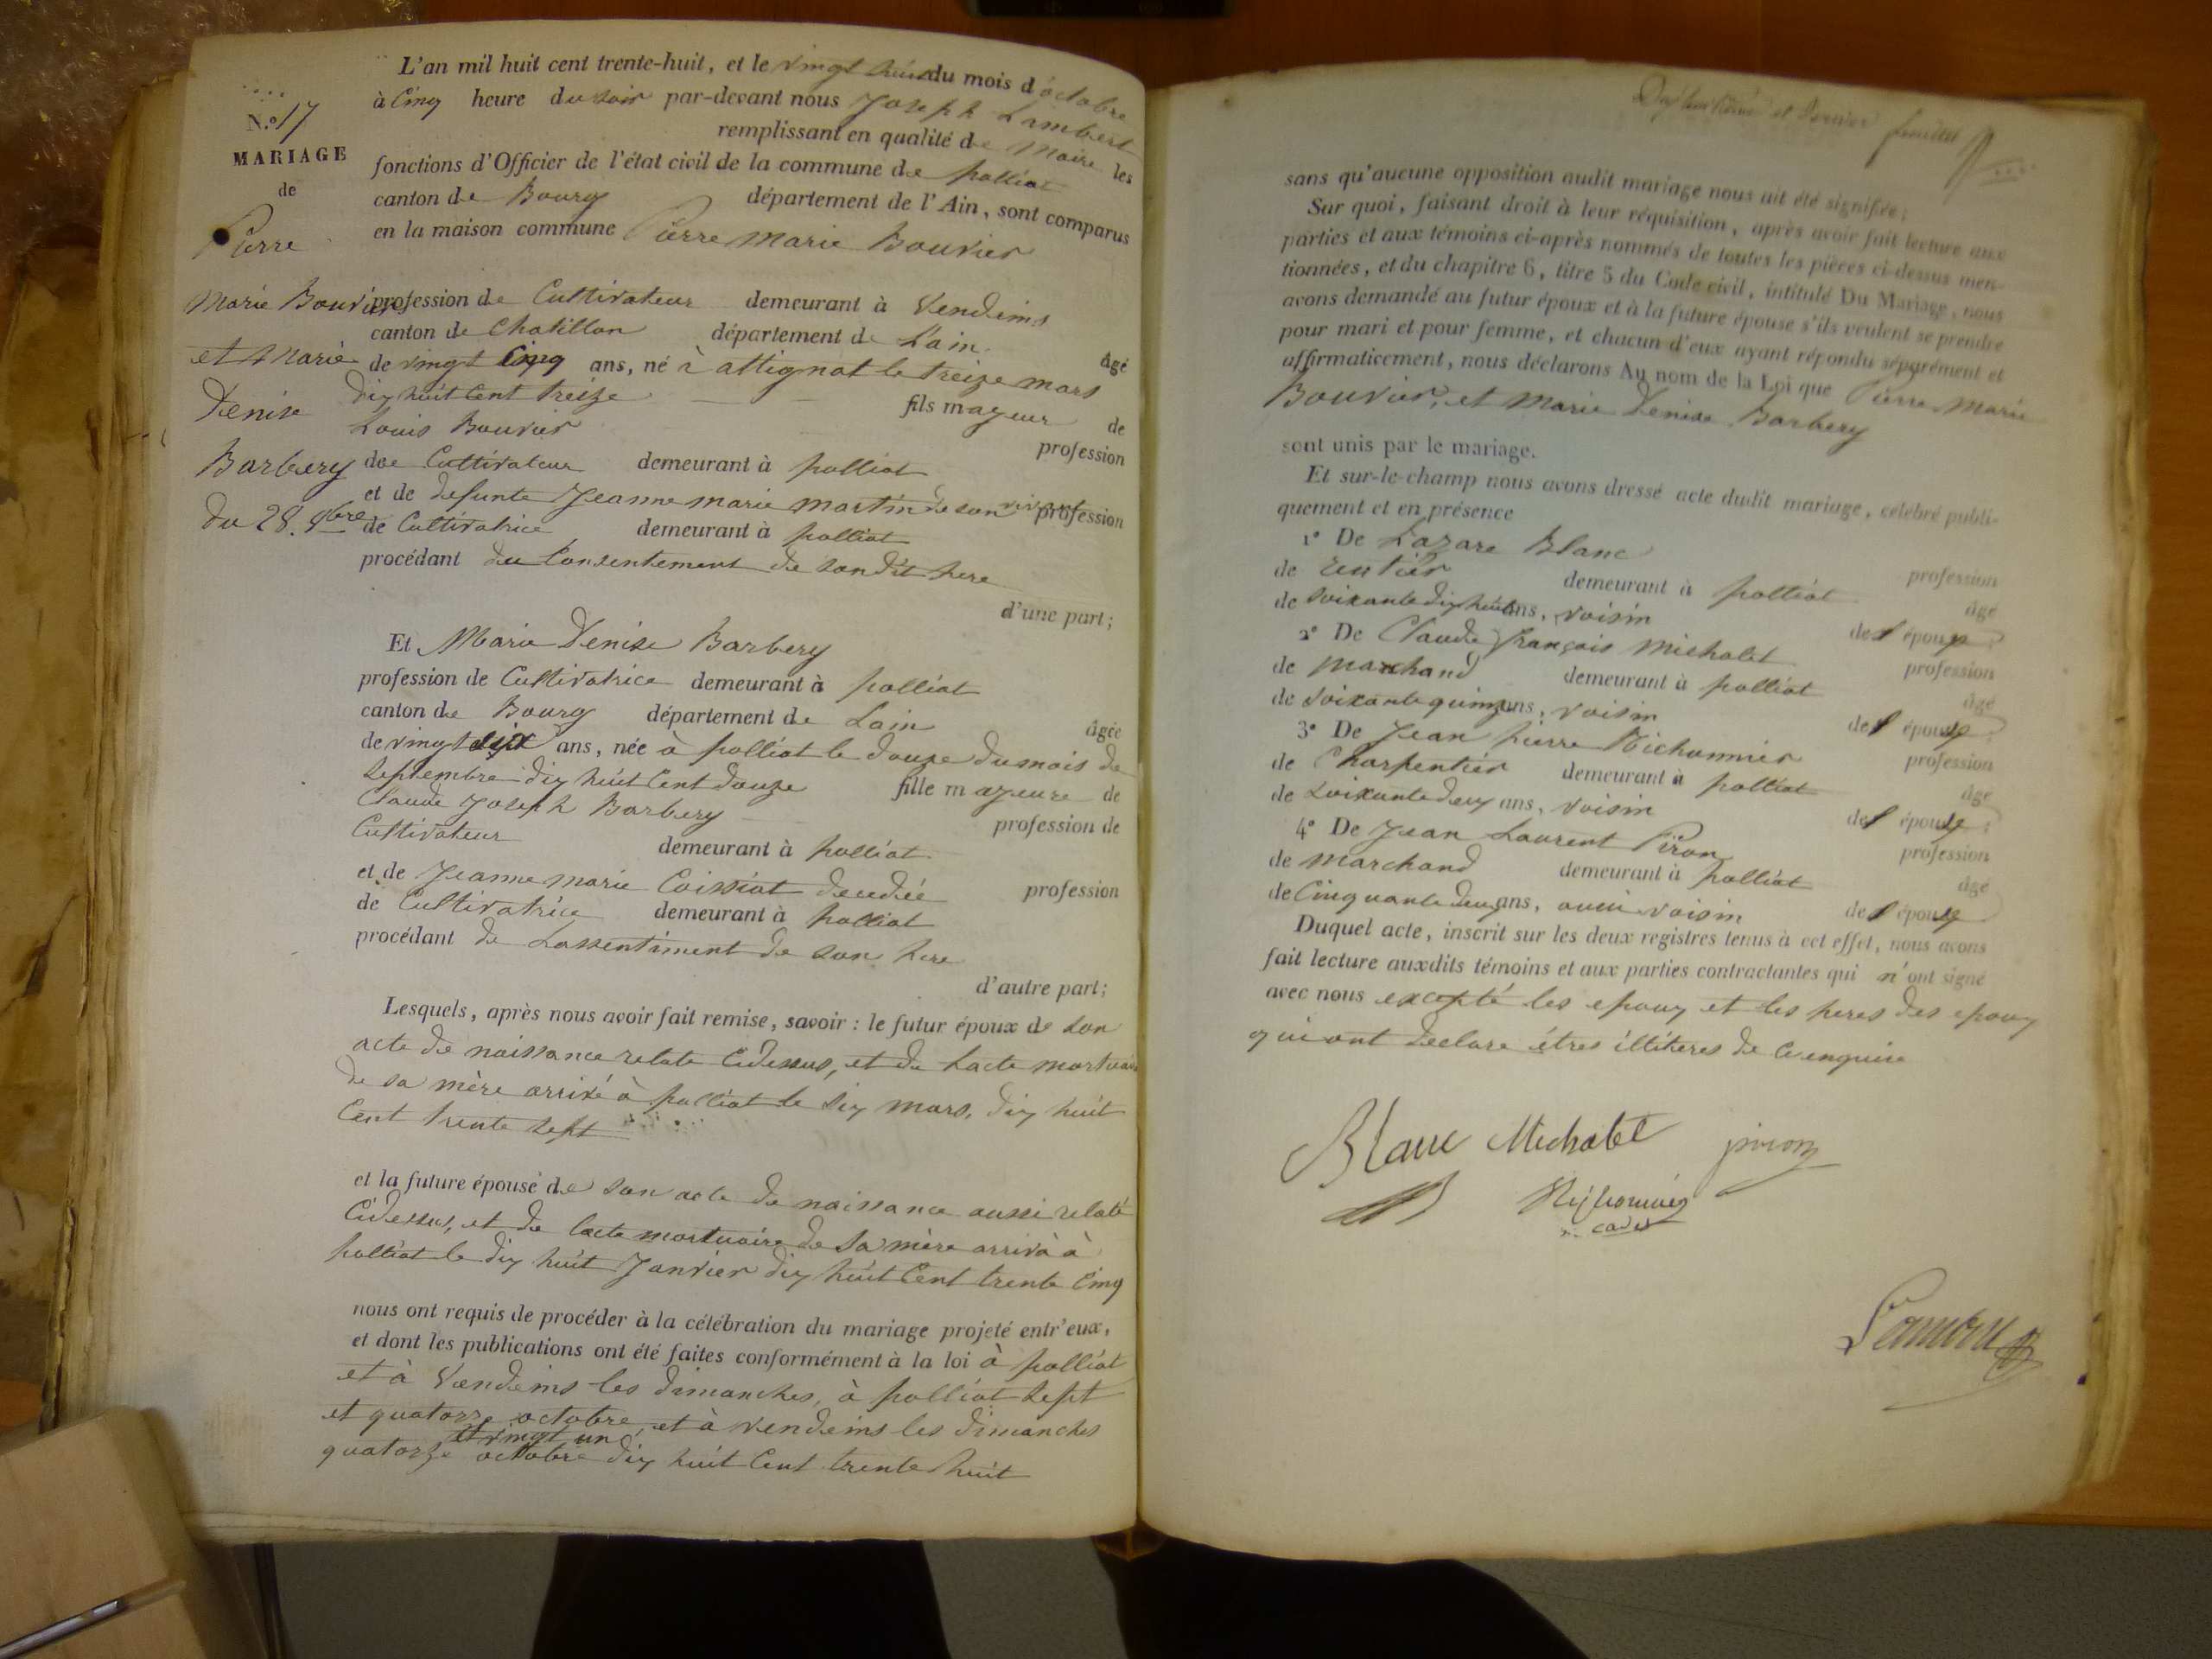 N.º 17
MARIAGE
de
Pierre
Marie Bouvier
et Marie
Denise
Barbery
du 28. 8bre
L'an mil huit cent trente-huit, et le vingt huit du mois d'octobre
à Cinq heure du soir par-devant nous Joseph Lambert
remplissant en qualité de Maire les
fonctions d'Officier de l'état civil de la commune de polliat
canton de Bourg département de l'Ain, sont comparus
en la maison commune Pierre Marie Bouvier
profession de Cultivateur demeurant à Vendeins
canton de Chatillon département de Lain. âgé
de vingt Cinq ans, né à attignat le treize mars
dix huit Cent treize fils mageur de
Louis Bouvier profession
de Cultivateur demeurant à polliat
et de defunte Jeanne marie martin de son vivant profession
de Cultivatrice demeurant à polliat
procédant du Consentement de son dit pere
d'une part;
Et Marie Denise Barbery
profession de Cultivatrice demeurant à polliat
canton de Bourg département de Lain âgée
de vingt six ans, née à polliat le douze du mois de
septembre dix huit Cent douze fille mageure de
Claude Joseph Barbery profession de
Cultivateur demeurant à polliat
et de Jeanne marie Coissiat profession
de Cultivatrice demeurant à polliat
procédant de Lassentiment de son pere
d'autre part;
Lesquels, après nous avoir fait remise, savoir : le futur époux de son
acte de naissance relate Cidessus, et de Lacte mortuaire
de sa mère arrivé à polliat le six mars, dix huit
Cent trente sept
et la future épouse de son acte de naissance aussi relaté
Cidessus, et de lacte mortuaire de sa mère arrivé à
polliat le dix huit Janvier dix huit Cent trente Cinq
nous ont requis de procéder à la célébration du mariage projeté entr'eux,
et dont les publications ont été faites conformément à la loi à polliat
et à Vendeins les dimanches, à polliat sept
et quatorze octobre, et à vendeins les dimanches
et vingt un
quatorze octobre dix huit Cent trente huit
et dernier feuillet
sans qu'aucune opposition audit mariage nous ait été signifiée;
Sur quoi, faisant droit à leur réquisition, après avoir fait lecture aux
parties et aux témoins ci-après nommés de toutes les pièces ci-dessus men-
tionnées, et du chapitre 6, titre 5 du Code civil, intitulé Du Mariage, nous
avons demandé au futur époux et à la future épouse s'ils veulent se prendre
pour mari et pour femme, et chacun d'eux ayant répondu séparément et
affirmativement, nous déclarons Au nom de la Loi que Pierre Marie
Bouvier, et Marie Denise Barbery
sont unis par le mariage.
Et sur-le-champ nous avons dressé acte dudit mariage, célébré publi-
quement et en présence
1º De Lazare Blanc profession
de rentier demeurant à polliat âgé
de soixante dix huit ans, voisin de l'épouse;
2º De Claude françois Michalet profession
de marchand demeurant à polliat âgé
de soixante quinze ans, voisin de l'épouse;
3º De Jean pierre Michonnier profession
de Charpentier demeurant à polliat âgé
de soixante deux ans, voisin de l'épouse;
4º De Jean Laurent Piron profession
de marchand demeurant à polliat âgé
de Cinquante deux ans, aussi voisin de l'épouse
Duquel acte, inscrit sur les deux registres tenus à cet effet, nous avons
fait lecture auxdits témoins et aux parties contractantes qui n'ont signé
avec nous excepté les epoux et les peres des epoux
qui ont declare étres illiteres de ce enquis
Blanc Michalet piron
cadet
Lambert